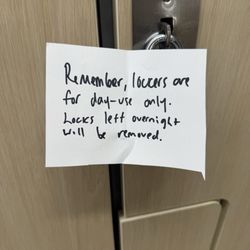 Remember, lockers are
for day-use only.
Locks left overnight
will be removed.